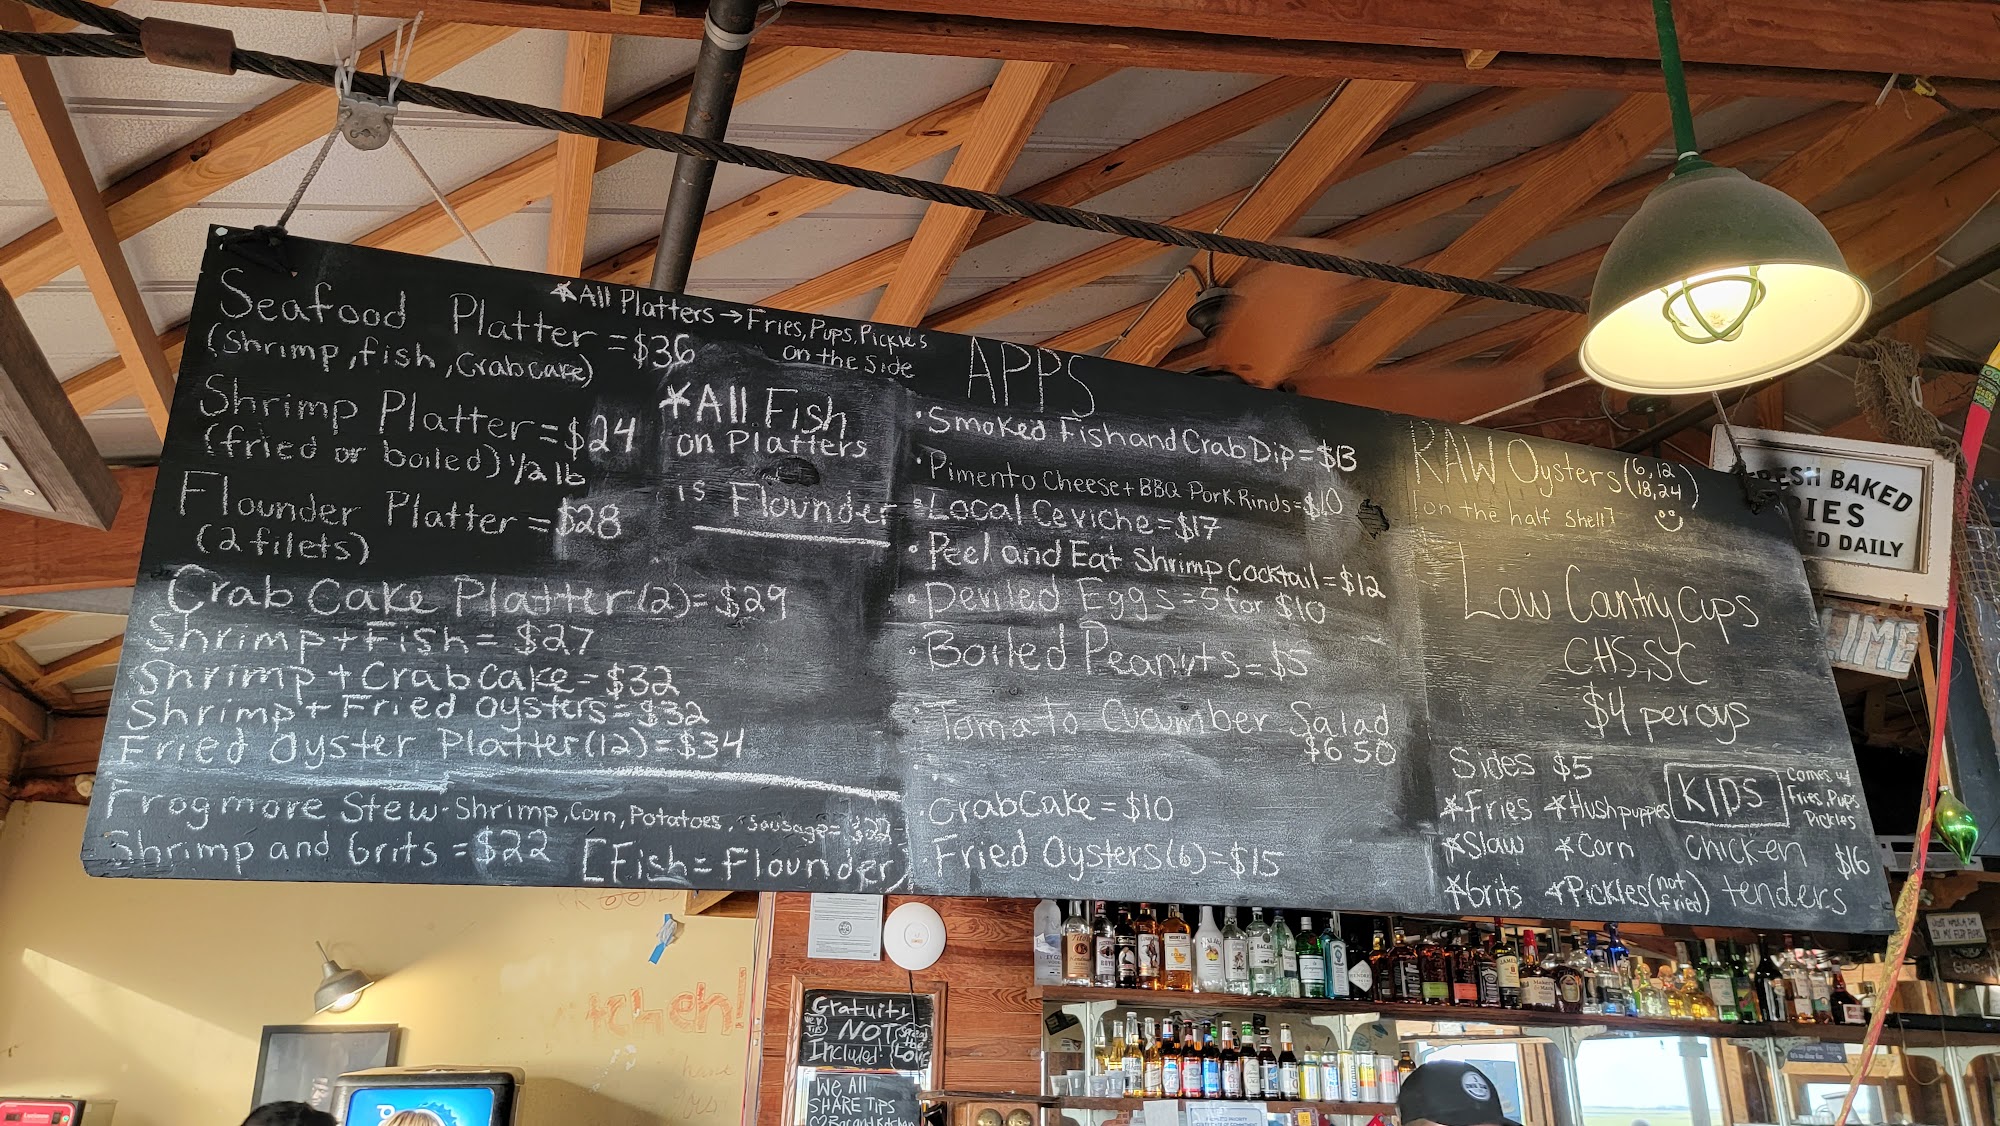 *All Platters → Fries, Pups, Pickles
on the side
Seafood Platter = $36
(Shrimp, fish, Crabcake)
Shrimp Platter = $24
(fried or boiled) 1/2 lb
Flounder Platter = $28
(2 filets)
*All Fish
on Platters
is Flounder
Crab Cake Platter (2) = $29
Shrimp + Fish = $27
Shrimp + Crab Cake = $32
Shrimp + Fried oysters = $32
Fried Oyster Platter (12) = $34
Frogmore Stew - Shrimp, Corn, Potatoes, Sausage = $22
Shrimp and Grits = $22
[Fish = Flounder)
APPS
• Smoked Fish and Crab Dip = $13
• Pimento Cheese + BBQ Pork Rinds = $10
• Local Ceviche = $17
• Peel and Eat Shrimp Cocktail = $12
• Deviled Eggs = 5 for $10
• Boiled Peanuts = $5
• Tomato Cucumber Salad
$6 50
• CrabCake = $10
• Fried Oysters (6) = $15
RAW Oysters (6, 12
18, 24)
[on the half Shell]
Low Country Cups
CHS, SC
$4 per oys
Sides $5
*Fries *Hushpuppies
*Slaw *Corn
*Grits *Pickles (not
fried)
KIDS
Comes w/
Fries, Pups
Pickles
Chicken $16
tenders
FRESH BAKED
PIES
ED DAILY
LIME
Gratuity
NOT
Included!
We All
SHARE TIPS